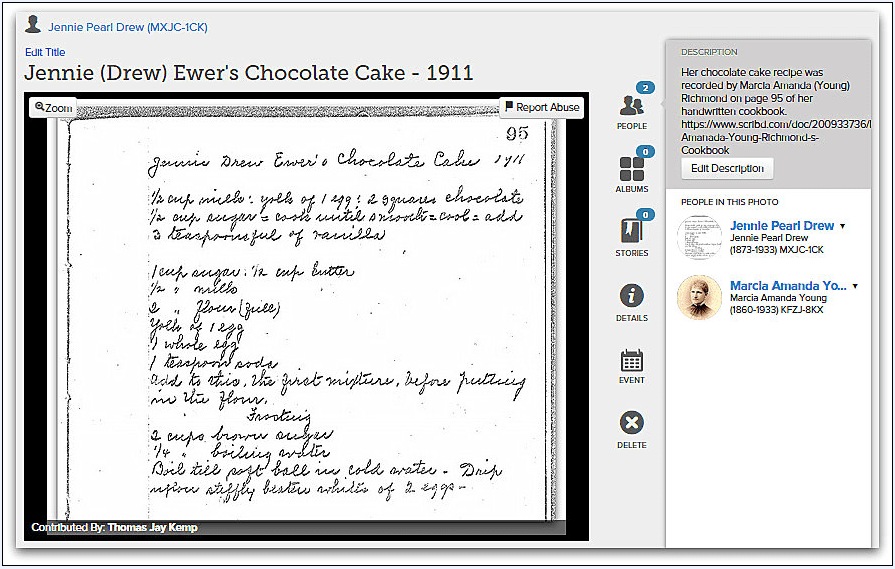 Jennie Pearl Drew (MXJC-1CK)
Edit Title
Jennie (Drew) Ewer's Chocolate Cake - 1911
Zoom
Report Abuse
95
Jennie Drew Ewer's Chocolate Cake 1911
1/2 cup milk: yolk of 1 egg: 2 squares chocolate
1/2 cup sugar = cook until smooth = cool = add
3 teaspoonsful of vanilla
1 cup sugar: 1/2 cup butter
1/2 " milk
2 " flour (full)
Yolk of 1 egg
1 whole egg
1 teaspoon soda
add to this, the first mixture, before putting
in the flour.
Frosting
2 cups brown sugar
1/4 " boiling water
Boil till soft ball in cold water - Drip
upon stiffly beaten whites of 2 eggs -
Contributed By: Thomas Jay Kemp
2
PEOPLE
0
ALBUMS
0
STORIES
DETAILS
EVENT
DELETE
DESCRIPTION
Her chocolate cake recipe was
recorded by Marcia Amanda (Young)
Richmond on page 95 of her
handwritten cookbook.
https://www.scribd.com/doc/200933736/
Amanada-Young-Richmond-s-
Cookbook
Edit Description
PEOPLE IN THIS PHOTO
Jennie Pearl Drew
Jennie Pearl Drew
(1873-1933) MXJC-1CK
Marcia Amanda Yo...
Marcia Amanda Young
(1860-1933) KFZJ-8KX